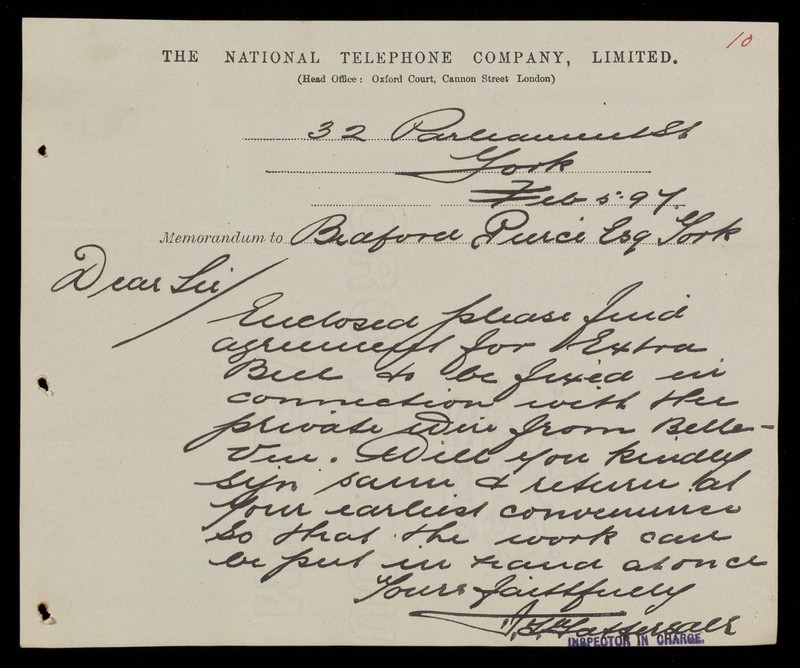 10
THE NATIONAL TELEPHONE COMPANY, LIMITED.
(Head Office: Oxford Court, Cannon Street London)
32 Parliament St
York
Feb 5. 97.
Memorandum to Bedford Pierce Esq York
Dear Sir/
Enclosed please find
agreement for Extra
Bell to be fixed in
connection with the
private Wire from Belle-
Vue. Will you kindly
sign same & return at
Your earliest convenience
So that the work can
be put in hand at once
Yours faithfully
Tattersall
INSPECTOR IN CHARGE.